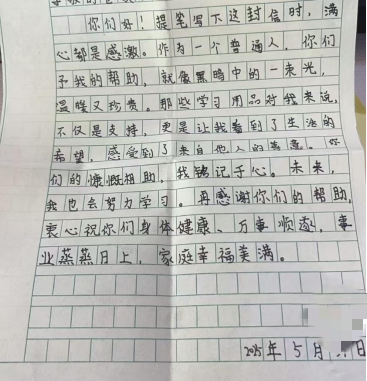 你们好！提笔写下这封信时，满
心都是感激。作为一个普通人，你们
予我的帮助，就像黑暗中的一束光，
温暖又珍贵。那些学习用品对我来说，
不仅是支持，更是让我看到了生活的
希望，感受到了来自他人的善意。你
们的慷慨相助，我铭记于心。未来，
我也会努力学习。再感谢你们的帮助，
衷心祝你们身体健康、万事顺遂，事
业蒸蒸日上，家庭幸福美满。
2025年5月 日